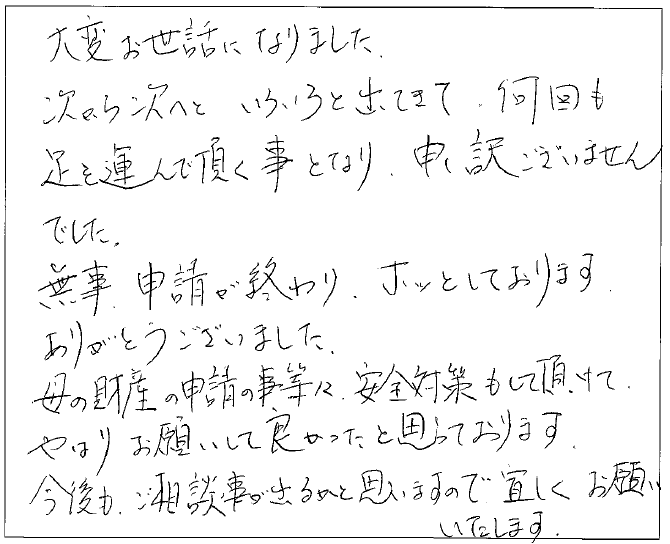 大変お世話になりました.
次から次へと いろいろと出てきて、何回も
足を運んで頂く事となり、申し訳ございません
でした。
無事、申請が終わり、ホッとしております.
ありがとうございました.
母の財産の申請の事等に、安全対策もして頂けて、
やはりお願いして良かったと思っております.
今後も、ご相談事が出るかと思いますので宜しくお願い
いたします.